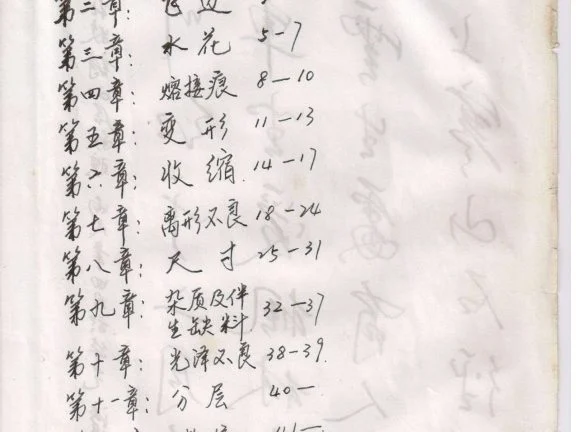 第二章:
第三章: 水花 5-7
第四章: 熔接痕 8-10
第五章: 变形 11-13
第六章: 收缩 14-17
第七章: 离形不良 18-24
第八章: 尺寸 25-31
第九章: 杂质及伴
生缺料 32-37
第十章: 光泽不良 38-39.
第十一章: 分层 40-